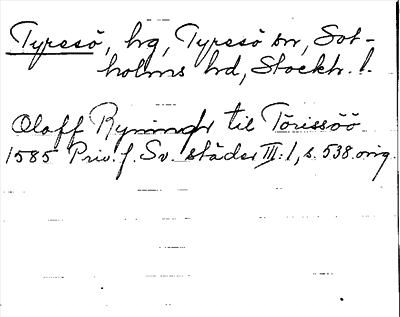 Tyresö, hg, Tyresö sn, Sot-
holms hd, Stockh. l.
Oloff Ryningh til Törissöö
1585 Priv. f. Sv. städer III:1, s. 538. orig.